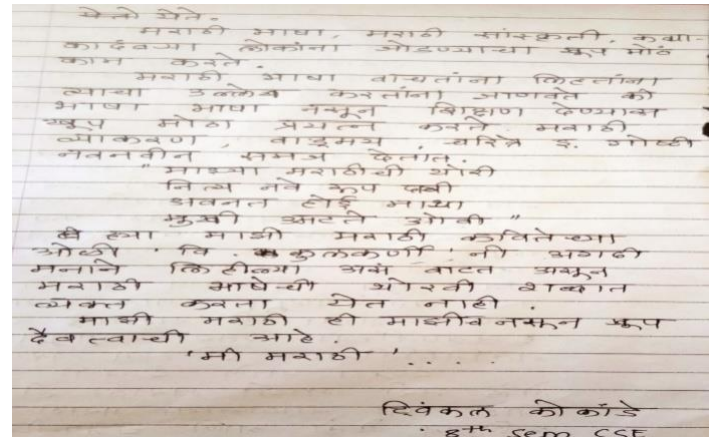 येतो येते.
मराठी भाषा, मराठी सांस्कृती, कथा-
कादंबऱ्या लोकांना जोडण्याचा खूप मोठं
काम करते.
मराठी भाषा वाचतांना लिहतांना
त्याचा उल्लेख करतांना जाणवते की
भाषा भाषा नसून शिक्षण देण्याचा
खूप मोठा प्रयत्न करते मराठी
व्याकरण, वाङ्मय, चरित्रे इ. गोष्टी
नवनवीन समज देतात.
"माझ्या मराठीची थोरी
नित्य नवे रूप दावी
अवनत होई माथा
मुखी उमटते ओवी"
ह्या माझी मराठी कवितेच्या
ओळी 'वि. कुलकर्णी' नी अगदी
मनाने लिहील्या असं वाटत असून
मराठी भाषेची थोरवी शब्दात
व्यक्त करता येत नाही.
माझी मराठी ही माझीच नसून खूप
दैवत्वाची आहे.
'मी मराठी'. . . .
कोकांडे
8th Sem CSE